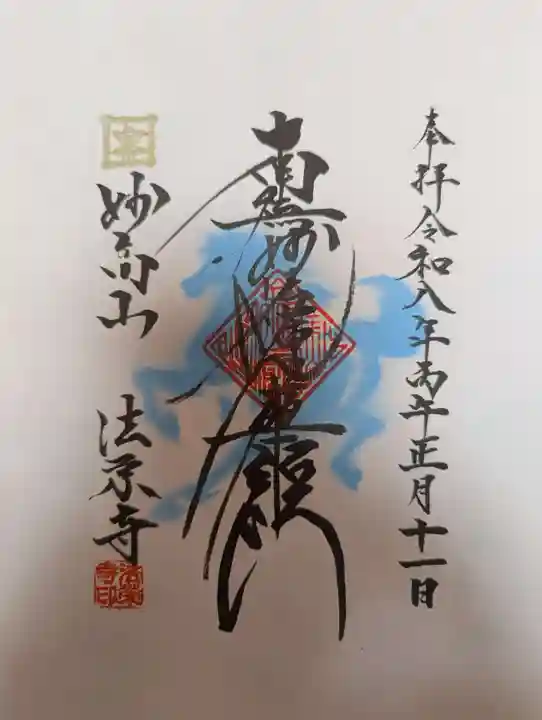 奉拝令和八年丙午正月十一日
南無妙法蓮華経
妙高山 法宗寺